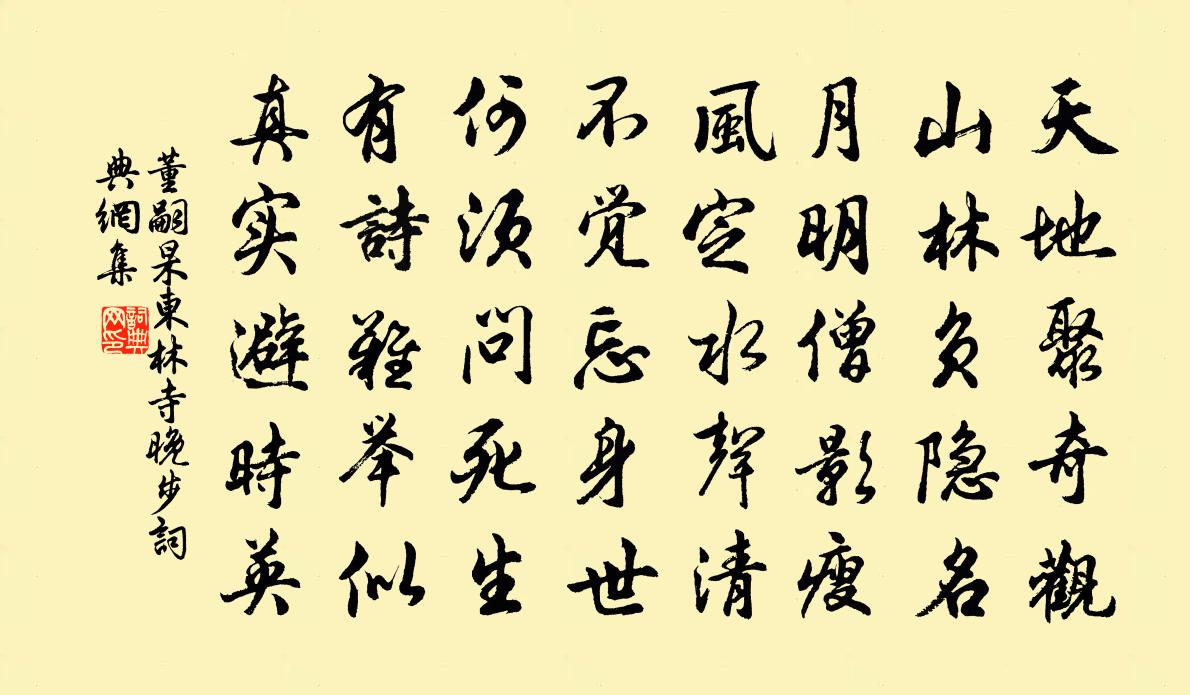 天地聚奇觀
山林負隐名
月明僧影瘦
風定水聲清
不觉忘身世
何須問死生
有詩難举似
真实避時英
董嗣杲東林寺晚步詞
典網集
詞典
网印